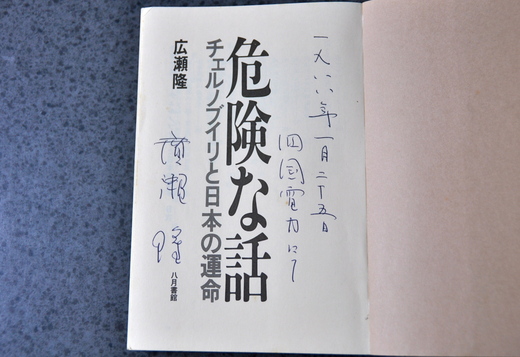 一九八八年一月二十五日
四国電力にて
危険な話
チェルノブイリと日本の運命
広瀬隆
廣瀬隆
八月書館